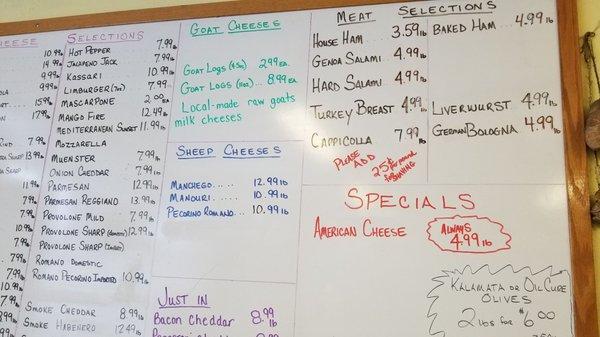 CHEESE SELECTIONS
10.99 lb
14.99 lb
9.99 lb
9.99 lb
15.99 lb
17.99 lb
7.99 lb
8.99 lb
HOT PEPPER 7.99 lb
JALAPENO JACK 7.99 lb
KASSARI 10.99 lb
LIMBURGER 7.99 lb
MASCARPONE 2.00 EA
MANGO FIRE 12.49 lb
MEDITERRANEAN SUNSET 11.99 lb
MOZZARELLA
MUENSTER 7.99 lb
ONION CHEDDAR 7.99 lb
PARMESAN 12.99 lb
PARMESAN REGGIANO 13.99 lb
PROVOLONE MILD 7.99 lb
PROVOLONE SHARP (DOMESTIC) 12.99 lb
PROVOLONE SHARP
ROMANO DOMESTIC
ROMANO PECORINO IMPORTED 10.99 lb
SMOKE CHEDDAR 8.99 lb
SMOKE HABENERO 12.49 lb
GOAT CHEESES
GOAT LOGS (4oz) 2.99 EA.
GOAT LOGS (11oz) 8.99 EA.
LOCAL-MADE raw goats
milk cheeses
SHEEP CHEESES
MANCHEGO..... 12.99 lb
MANOURI..... 10.99 lb
PECORINO ROMANO... 10.99 lb
JUST IN
BACON CHEDDAR 8.99 lb
MEAT SELECTIONS
HOUSE HAM 3.59 lb
GENOA SALAMI 4.99 lb
HARD SALAMI 4.99 lb
TURKEY BREAST 4.99 lb
CAPPICOLLA 7.99 lb
PLEASE ADD
25¢ PER pound
for SLICING
BAKED HAM 4.99 lb
LIVERWURST 4.99 lb
GERMAN BOLOGNA 4.99 lb
SPECIALS
AMERICAN CHEESE
ALWAYS
4.99 lb
KALAMATA OR OIL CURE
OLIVES
2 lbs for $6.00